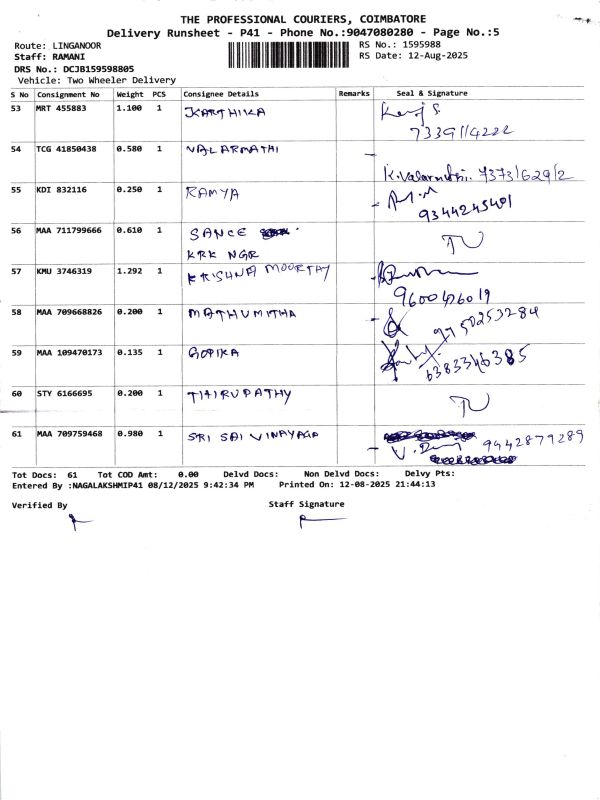 THE PROFESSIONAL COURIERS, COIMBATORE
Delivery Runsheet - P41 - Phone No.:9047080280 - Page No.:5
Route: LINGANOOR
RS No.: 1595988
Staff: RAMANI
RS Date: 12-Aug-2025
DRS No.: DCJB159598805
Vehicle: Two Wheeler Delivery
S No Consignment No Weight PCS Consignee Details Remarks Seal & Signature
53 MRT 455883 1.100 1 KARTHIKA
7339114222
54 TCG 41850438 0.580 1 VALARMATHI
K.Valarmathi. 7373162912
55 KDI 832116 0.250 1 RAMYA
9344245401
56 MAA 711799666 0.610 1 SANCE
KRK NGR
57 KMU 3746319 1.292 1 KRISHNA MOORTHY
9600476019
58 MAA 709668826 0.200 1 MATHUMITHA
9750253284
59 MAA 109470173 0.135 1 GOPIKA
6383346385
60 STY 6166695 0.200 1 THIRUPATHY
61 MAA 709759468 0.980 1 SRI SAI VINAYAGA
9942879289
Tot Docs: 61 Tot COD Amt: 0.00 Delvd Docs: Non Delvd Docs: Delvy Pts:
Entered By :NAGALAKSHMIP41 08/12/2025 9:42:34 PM Printed On: 12-08-2025 21:44:13
Verified By Staff Signature